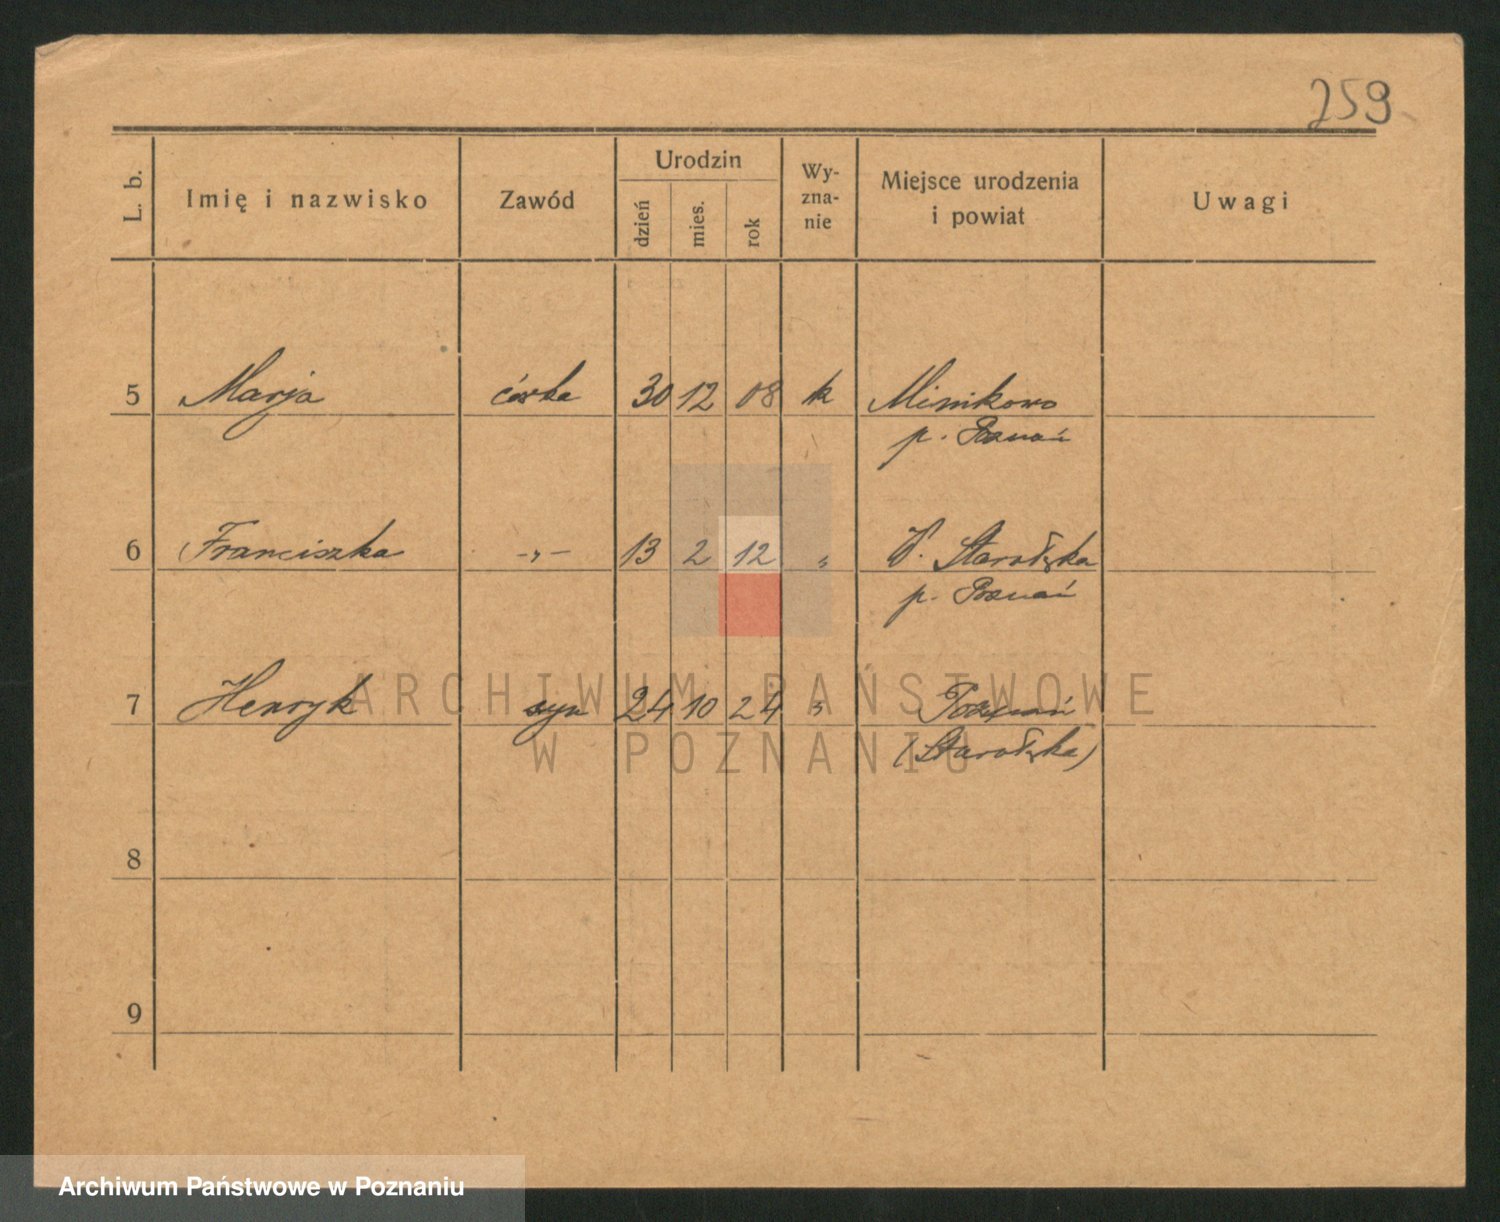 259
L. b.
Imię i nazwisko
Zawód
Urodzin
dzień
mies.
rok
Wy-
zna-
nie
Miejsce urodzenia
i powiat
Uwagi
5 Marja córka 30 12 08 k Minikowo
p. Poznań
6 Franciszka -„- 13 2 12 „ Starołęka
p. Poznań
7 Henryk syn 24 10 24 „ Poznań
(Starołęka)
8
9
ARCHIWUM PAŃSTWOWE
W POZNANIU
Archiwum Państwowe w Poznaniu